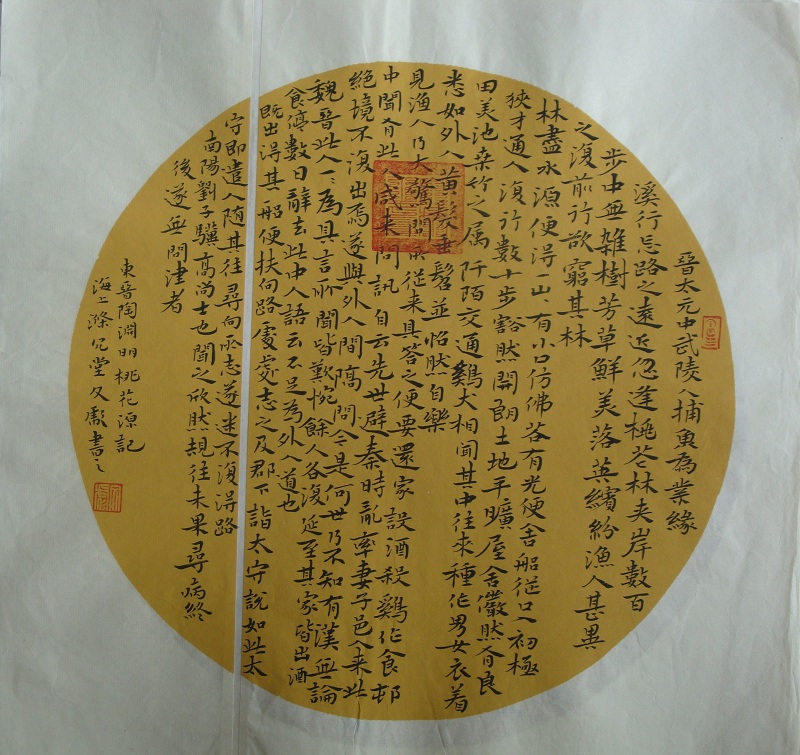 晉太元中武陵人捕魚為業緣
溪行忘路之遠近忽逢桃花林夾岸數百
步中無雜樹芳草鮮美落英繽紛漁人甚異
之復前行欲窮其林
林盡水源便得一山、有小口仿佛若有光便舍船從口入初極
狹才通人復行數十步豁然開朗土地平曠屋舍儼然有良
田美池桑竹之屬阡陌交通鷄犬相聞其中往來種作男女衣着
悉如外人黃髮垂髫並怡然自樂
見漁人乃大驚問所從来具答之便要還家設酒殺鷄作食邨
中聞有此人咸来問訊自云先世避秦時亂率妻子邑人来此
絕境不復出焉遂與外人間隔問今是何世乃不知有漢無論
魏晉此人一一為具言所聞皆歎惋餘人各復延至其家皆出酒
食停數日辭去此中人語云不足為外人道也
既出得其船便扶向路處處志之及郡下詣太守說如此太
守即遣人隨其往尋向所志遂迷不復得路
南陽劉子驥高尚士也聞之欣然規往未果尋病終
後遂無問津者
東晉陶淵明桃花源記
海上滌冗堂書之